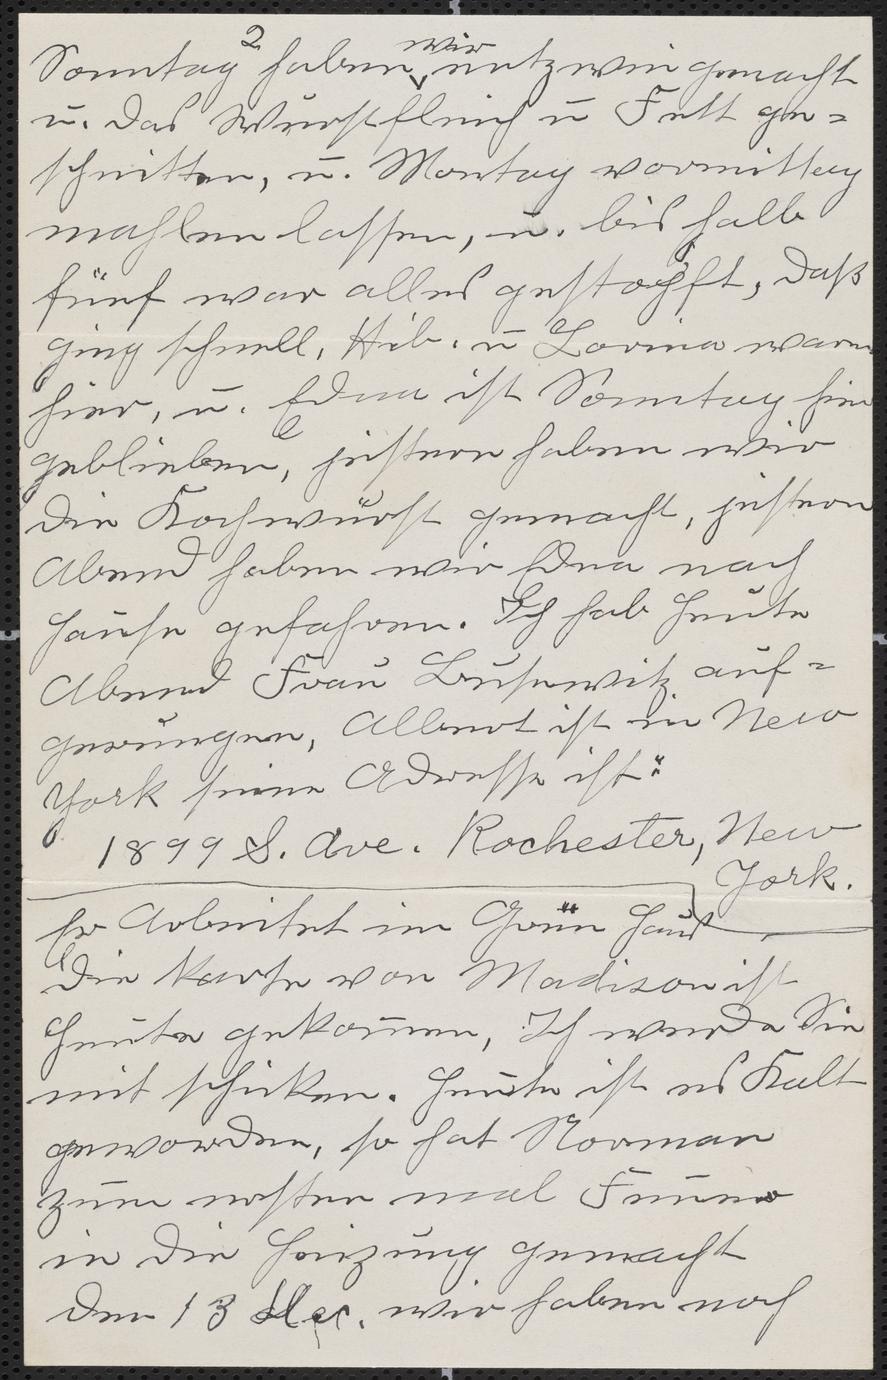 2
Sonntag haben wir entzwei gemacht
u. das Wurstfleisch u Fett ge=
schnitten, u. Montag vormittag
mahlen lassen, u. bis halb
fünf war alles gestopft, daß
ging schnell, Hib. u Lorina waren
hier, u. Edna ist Sonntag hier
geblieben, jestern haben wir
die Kochwurst gemacht, jestern
Abend haben wir Edna nach
Hause gefahren. Ich hab heute
Abend Frau Busewitz auf=
gerungen, Albert ist in New
York seine Adresse ist:
1899 S. Ave. Rochester, New
York.
Er Arbeitet im Grün Haus
Die Karte von Madison ist
Heute gekommen, Ich werde Sie
mit schicken. Heute ist es Kalt
geworden, so hat Norman
zum ersten mal Feuer
in die Heizung gemacht
den 13 wir haben noch